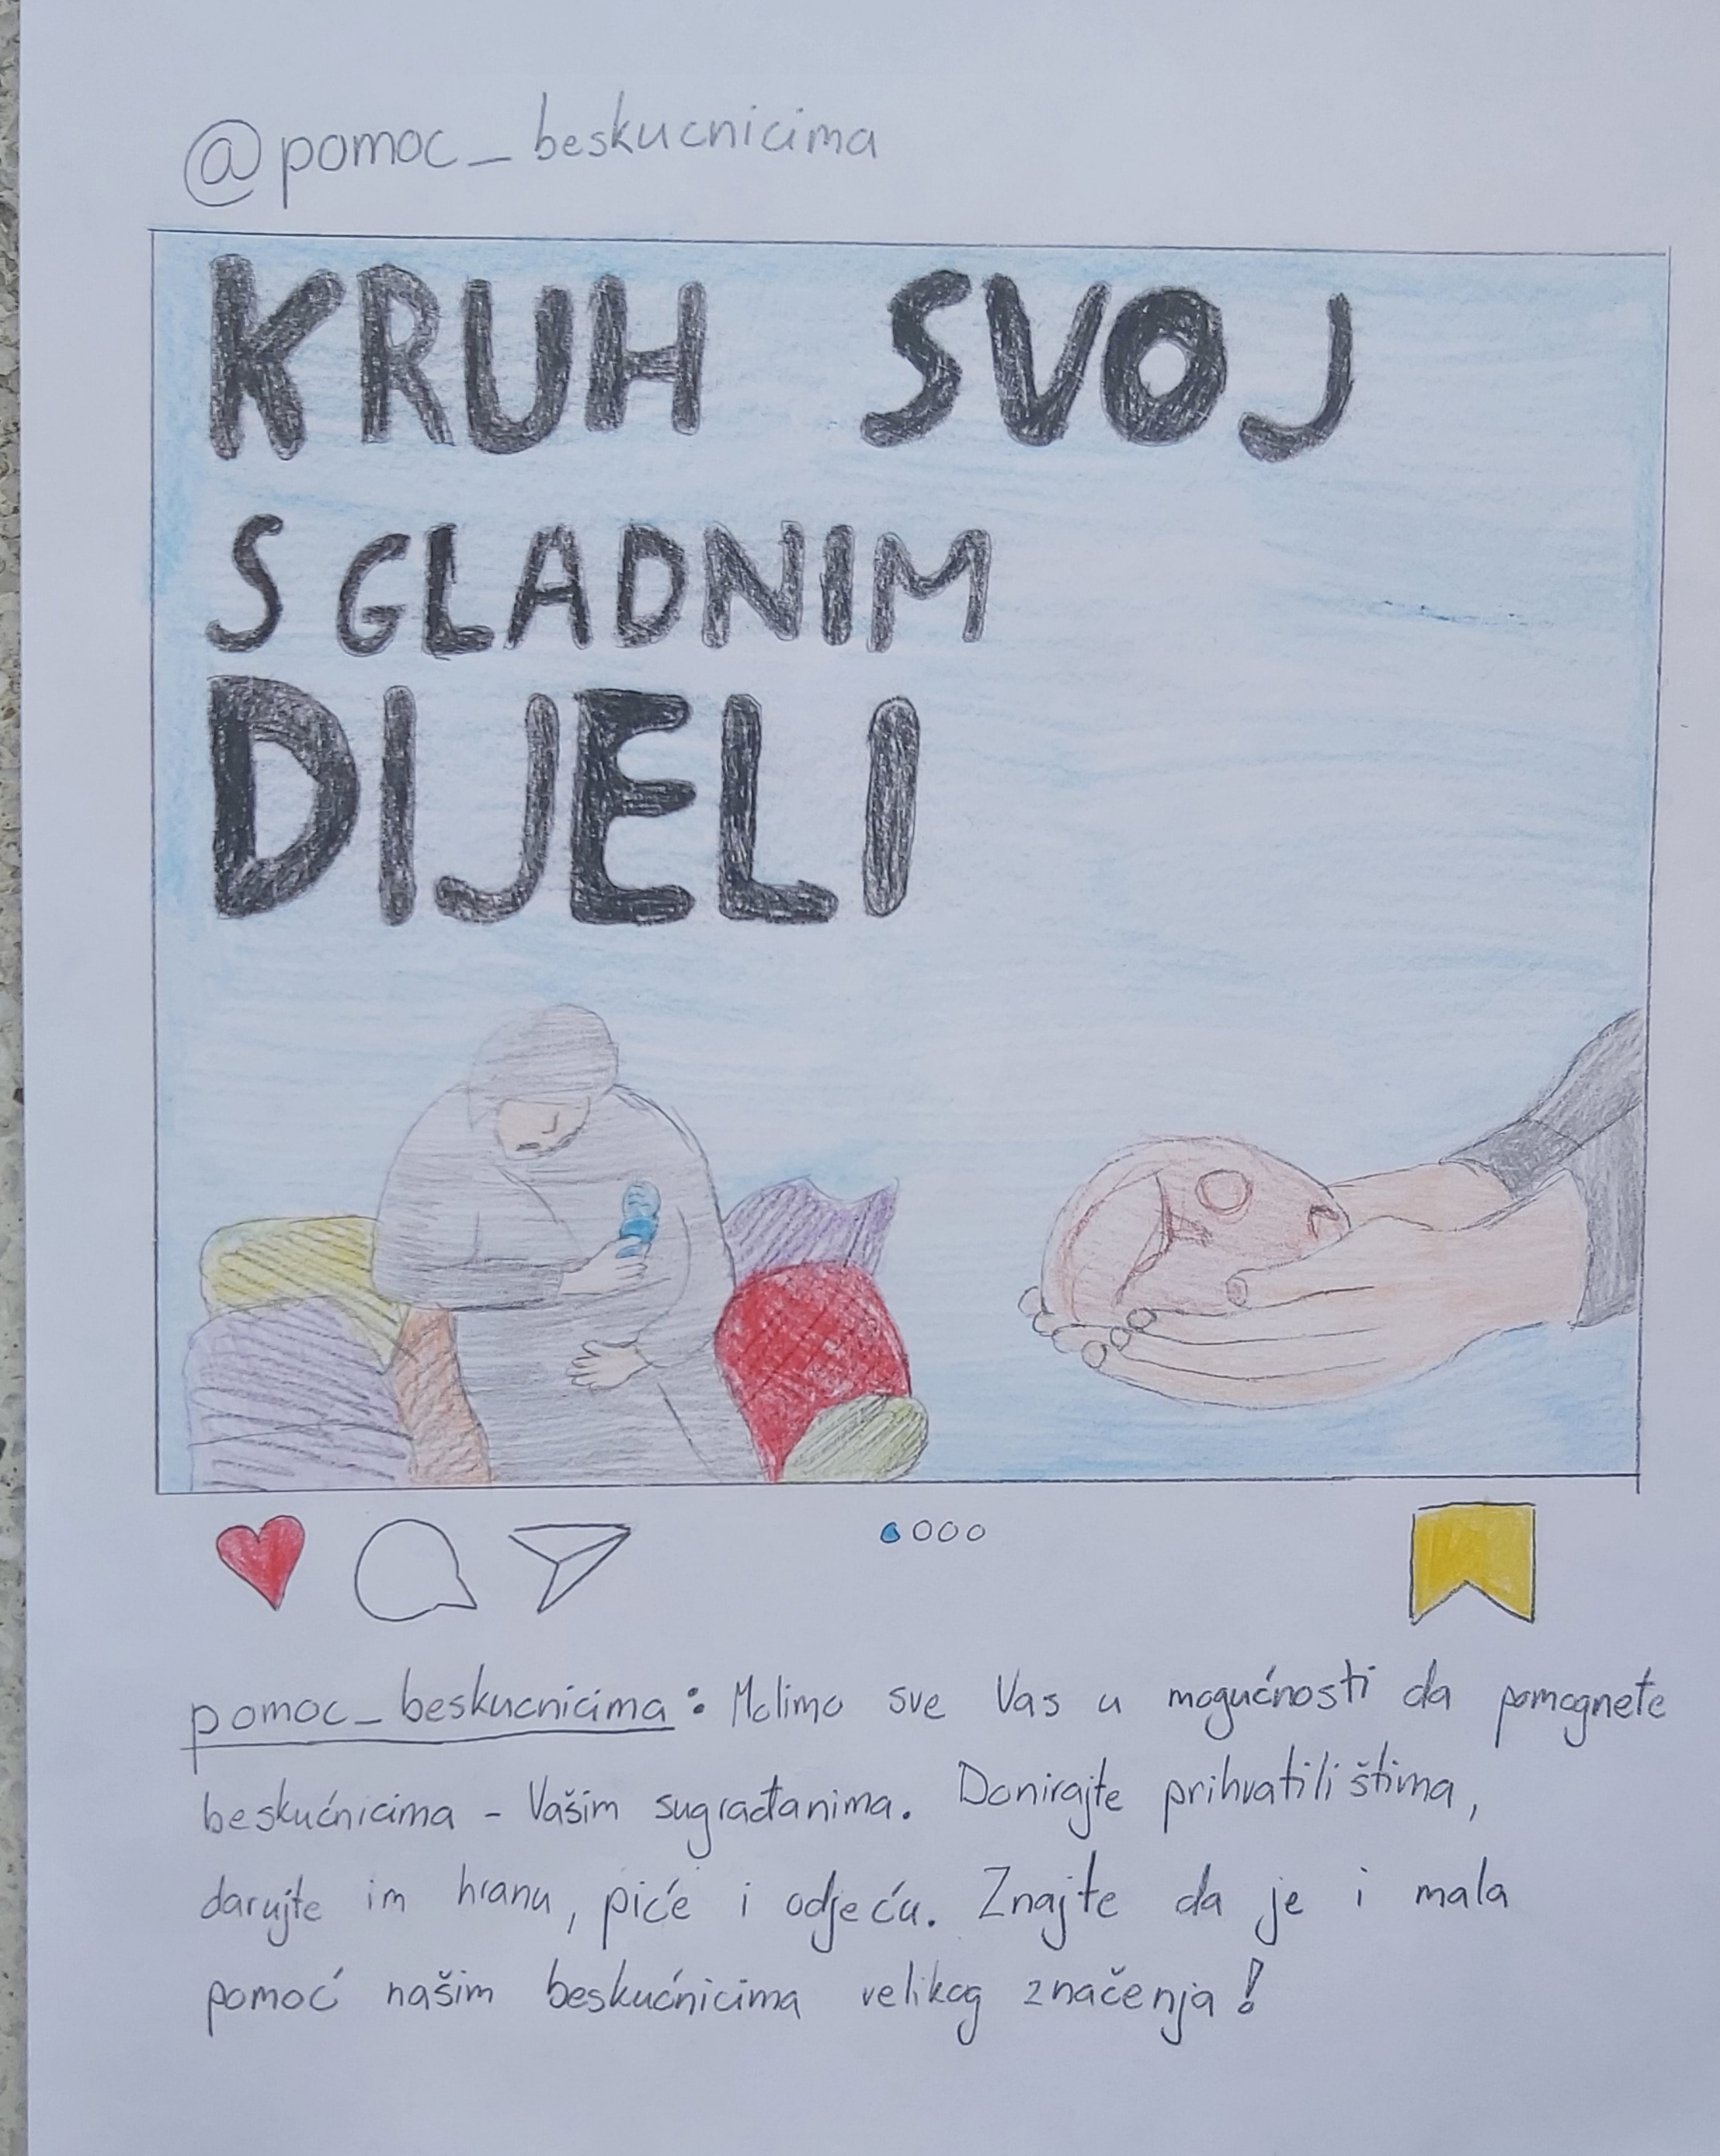 @pomoc_beskucnicima
KRUH SVOJ
S GLADNIM
DIJELI
pomoc_beskucnicima: Molimo sve Vas u mogućnosti da pomognete
beskućnicima - Vašim sugrađanima. Donirajte prihvatilištima,
darujte im hranu, piće i odjeću. Znajte da je i mala
pomoć našim beskućnicima velikog značenja!